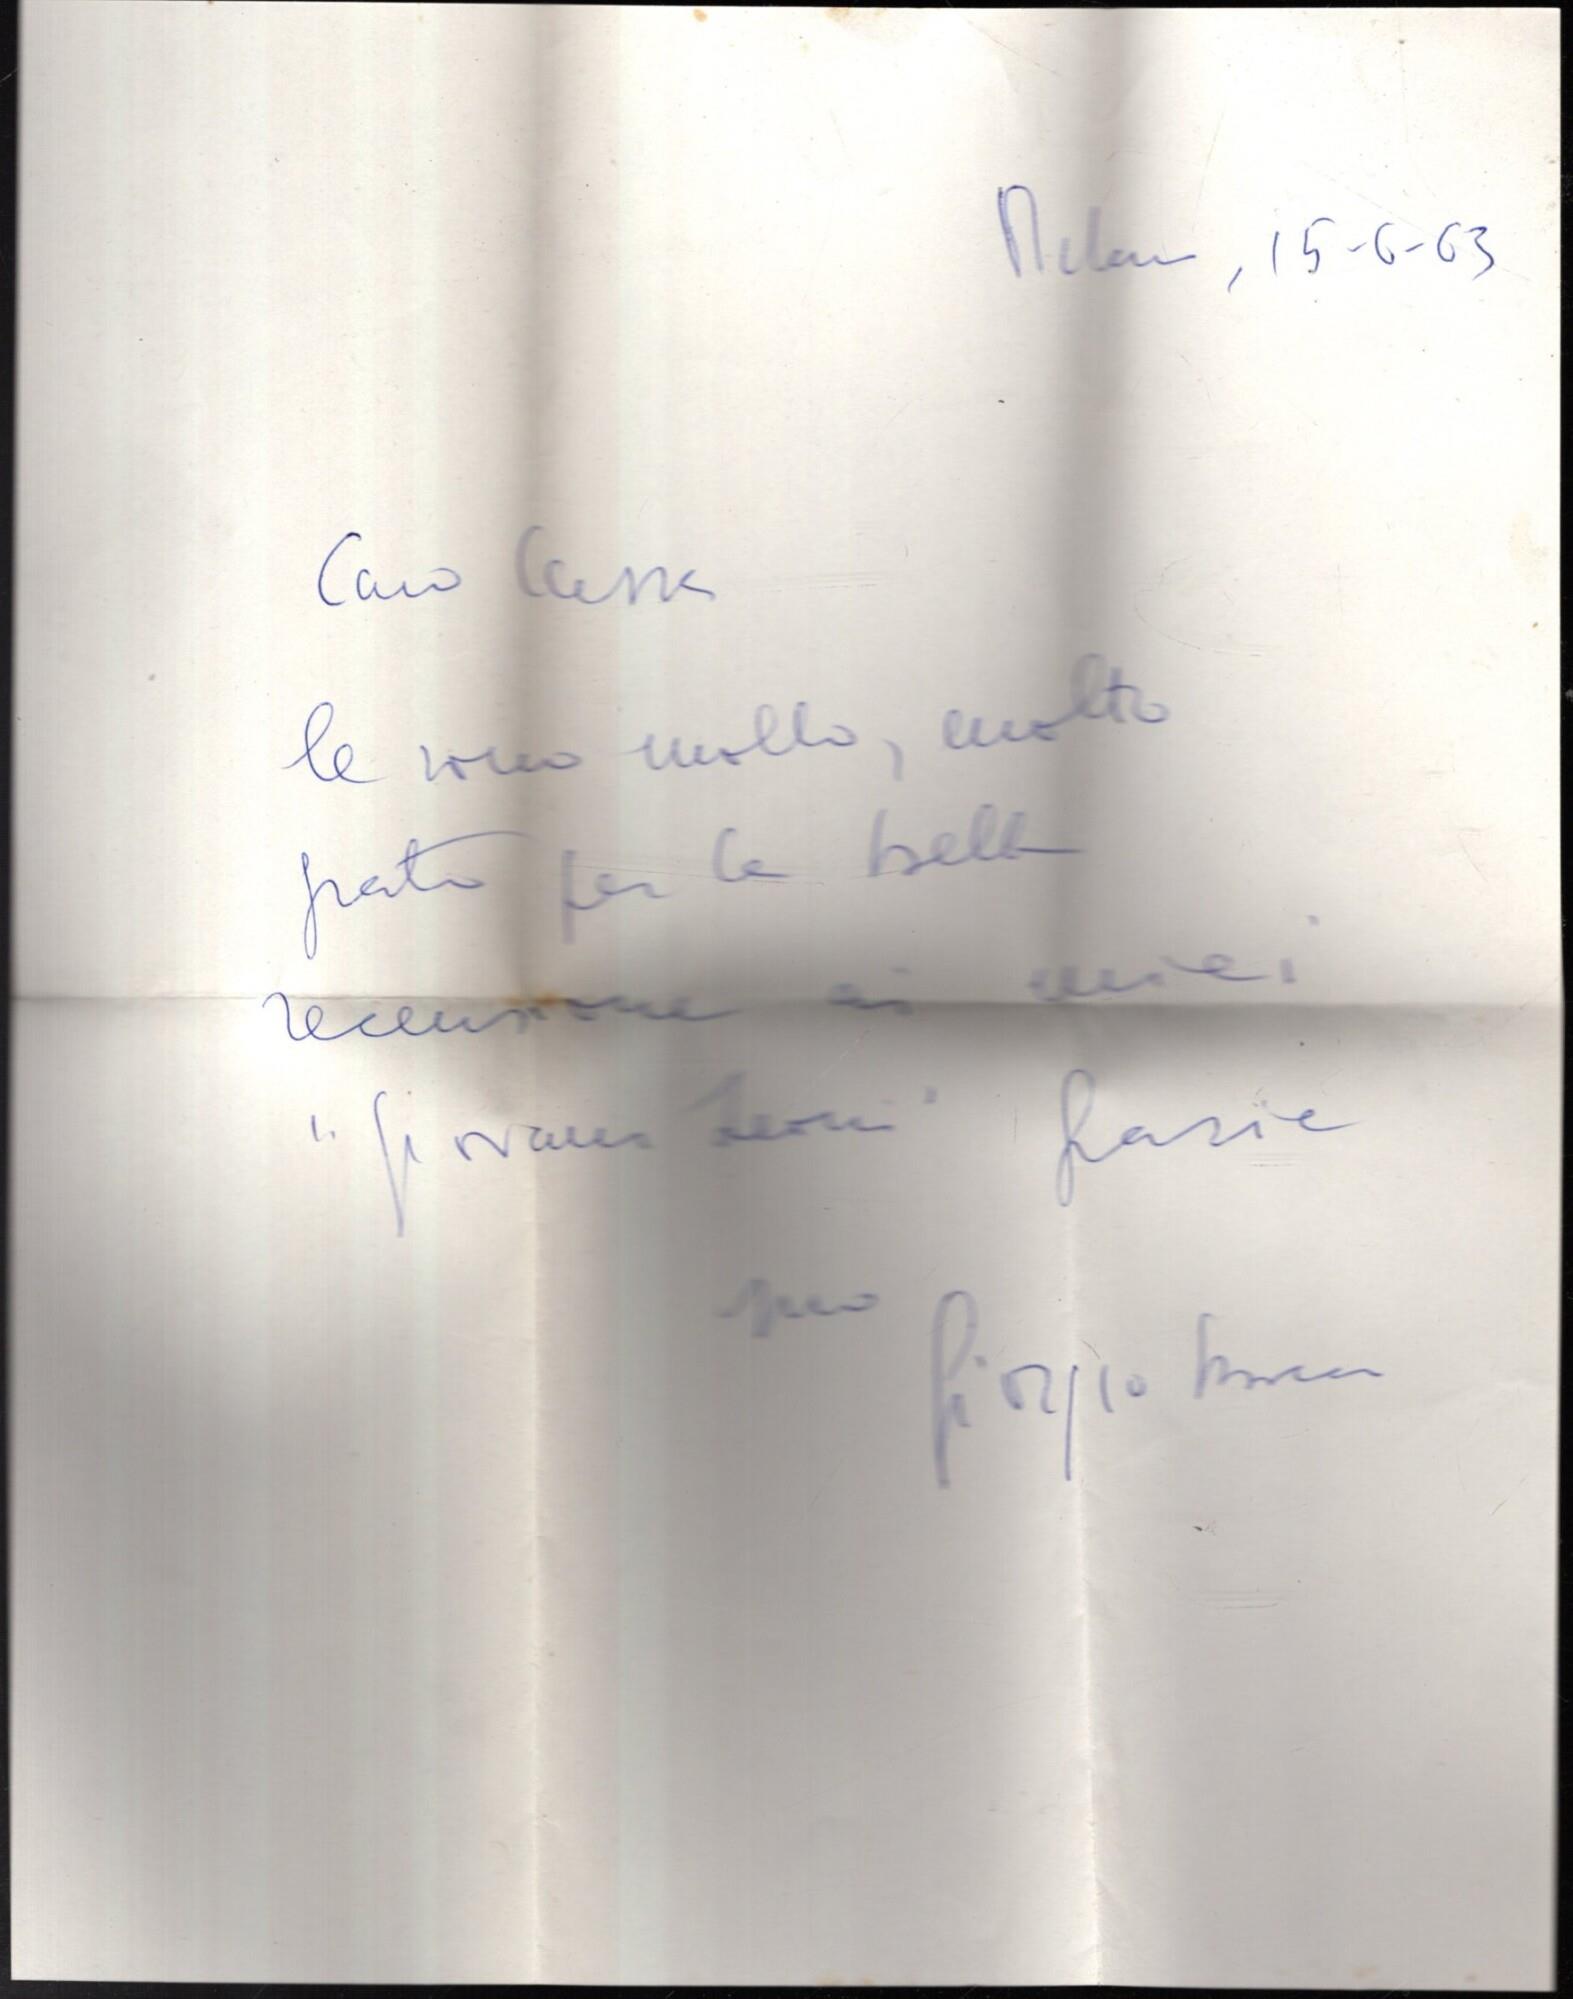 Milano, 15-6-63
Caro Cassa
le sono molto, molto
grato per la bella
recensione ai miei
"giovani leoni" grazie
suo
Giorgio Bocca